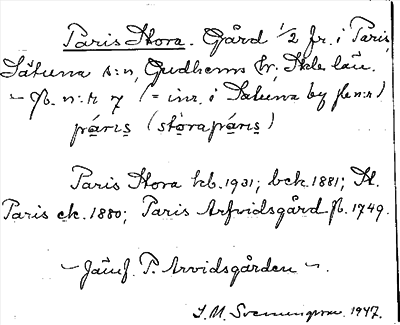 Paris Stora. Gård 1/2 fr. i Paris,
Sätuna s:n, Gudhems hr; Skbs län.
– Jb. n:r 7 (= inr. i Sätuna by sn:r)
párıs (stórapárıs)
Paris Stora kb. 1931; bck. 1881; St.
Paris ck. 1880; Paris Arfvidsgård Jb. 1749.
– Jämf. P. Arvidsgården –.
S. M. Svenungsson. 1947.